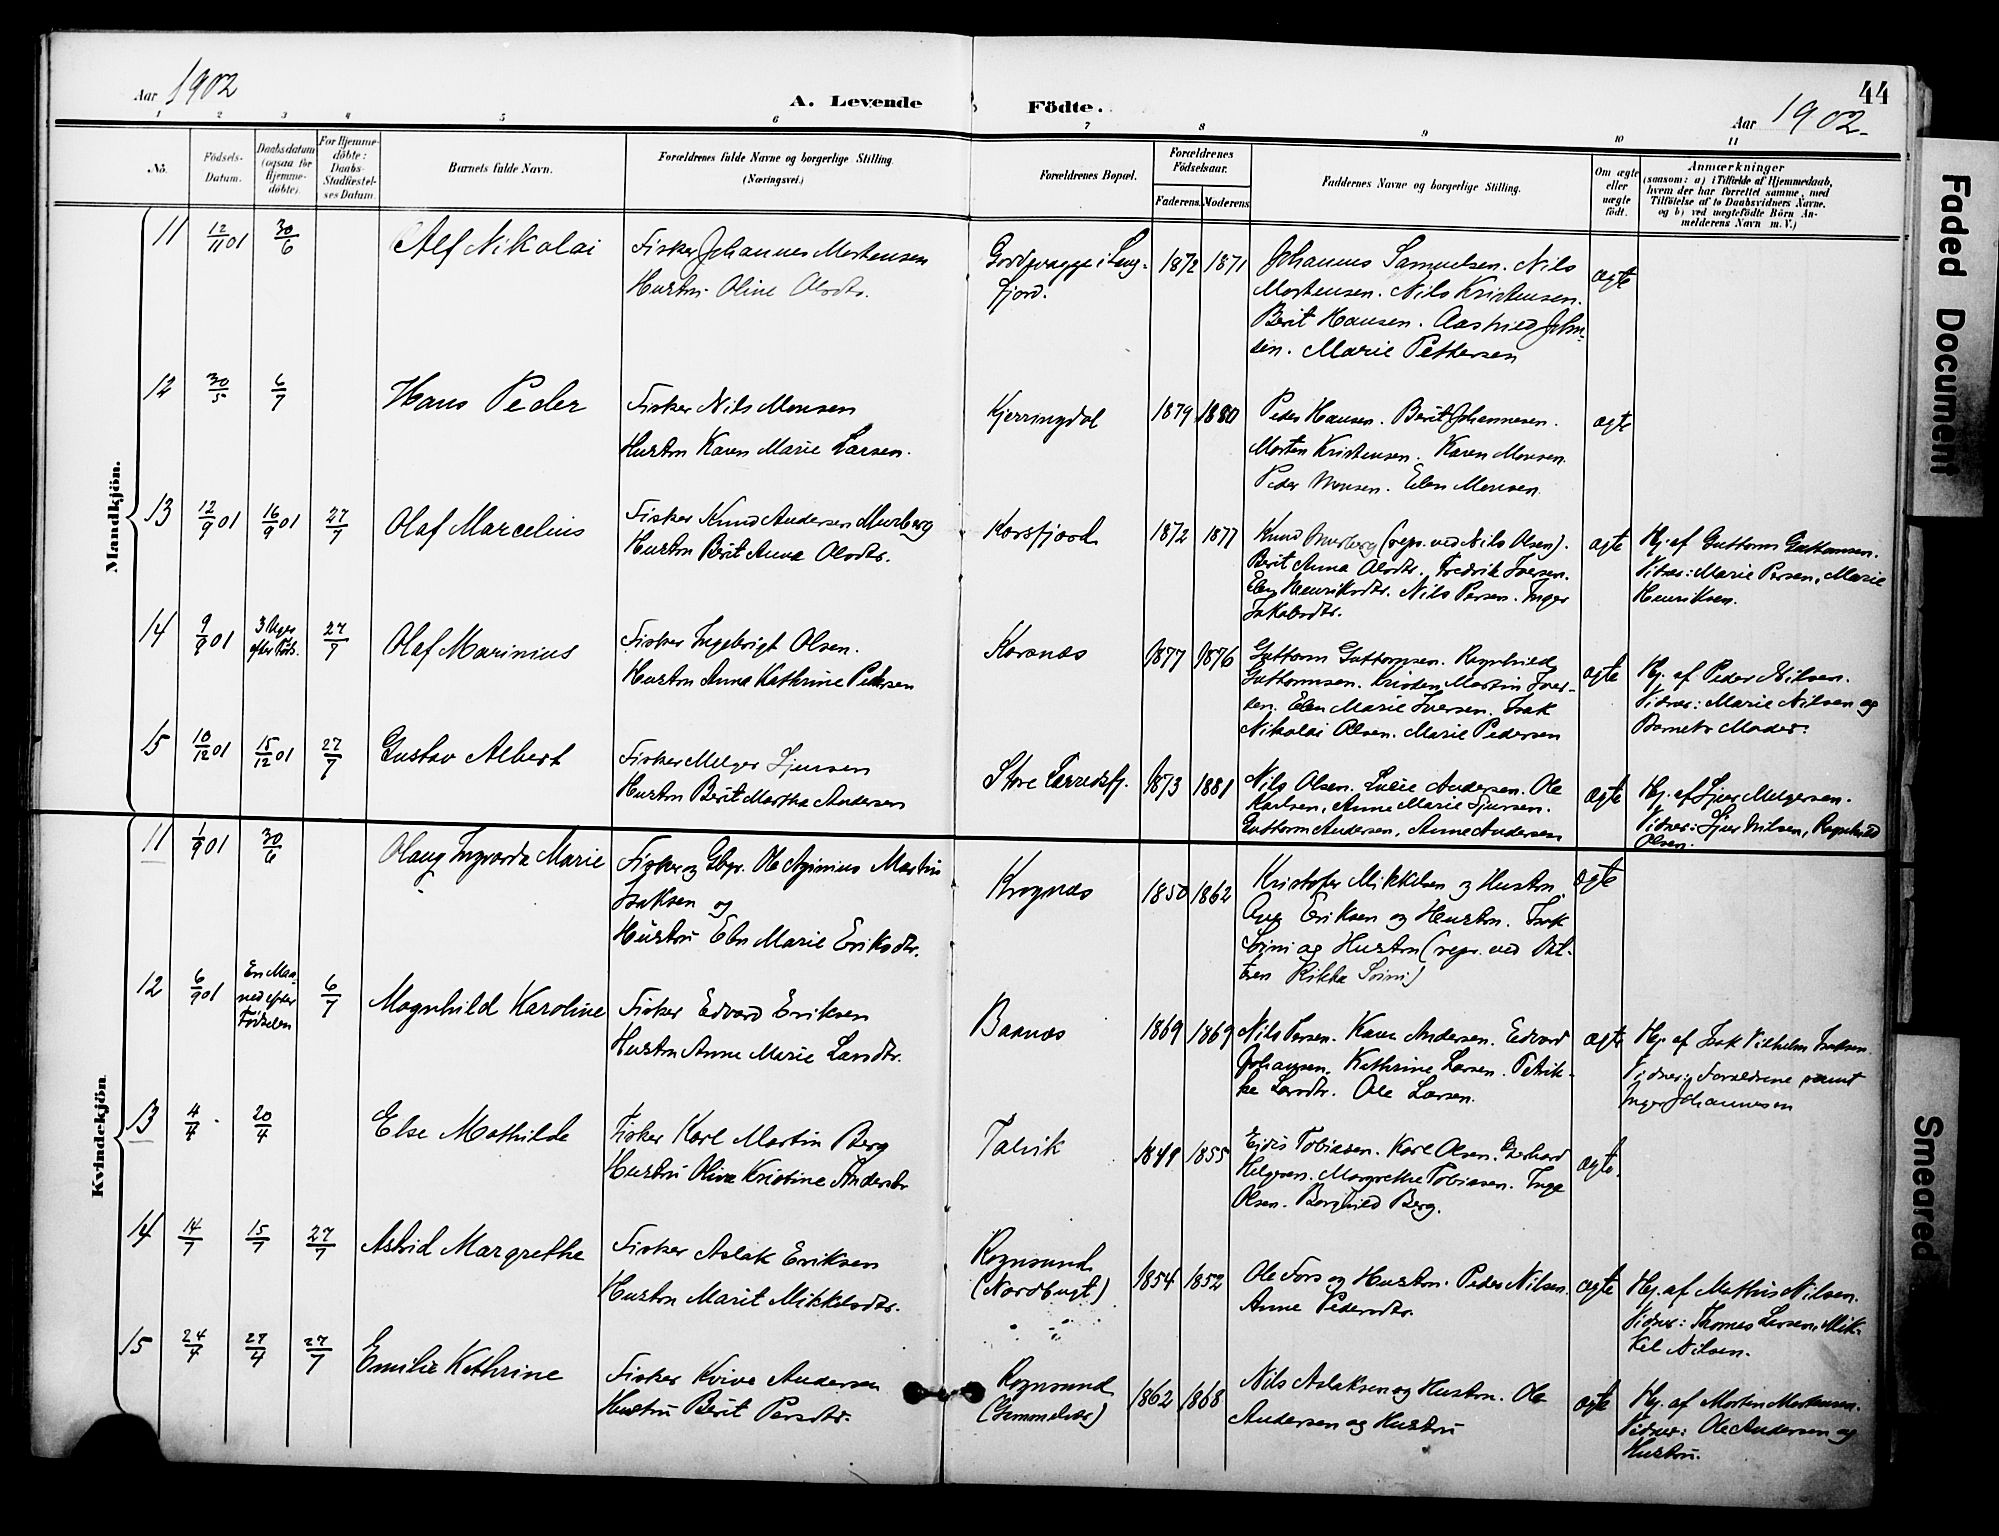 Aar 1902
A. Levende Födte.
44
Aar 1902.
1 2 3 4 5 6 7 8 9 10 11
No.
Födsels-
Datum.
Daabsdatum
(ogsaa for
Hjemme-
döbte).
For Hjemme-
döbte:
Daabs-
Stadfæstel-
ses Datum.
Barnets fulde Navn.
Forældrenes fulde Navne og borgerlige Stilling.
(Næringsvei.)
Forældrenes Bopæl.
Forældrenes
Födselsaar.
Faderens. Moderens.
Faddernes Navne og borgerlige Stilling.
Om ægte
eller
uægte
födt.
Anmærkninger
(saasom: a) i Tilfælde af Hjemmedaab,
hvem der har forrettet samme, med
Tilföielse af to Daabsvidners Navne,
og b) ved uægtefödte Börn An-
melderens Navn m. V.)
Mandkjön.
11 12/11 01 30/6 Alf Nikolai
Fisker Johannes Mortensen
Hustru Oline Olsdtr.
i Lang-
fjord.
1872 1871
Johannes Samuelsen. Nils
Mortensen. Nils Kristensen.
Berit Hansen. Aashild John-
sen. Marie Pettersen
ægte
12 30/5 6/7 Hans Peder
Fisker Nils Monsen
Hustru Karen Marie Larsen.
Kjerringdal
1879 1880
Peder Hansen. Berit Johannesen.
Morten Kristensen. Karen Monsen.
Peder Monsen. Elen Monsen
ægte
13 12/9 01 16/9 01 27/7 Olaf Marcelius
Fisker Knud Andersen Murberg
Hustru Berit Anna Olsdtr.
Korsfjord
1872 1877
Knud Murberg (repr. ved Nils Olsen).
Berit Anna Olsdtr. Fredrik Iversen.
Elen Henriksdtr. Nils Persen. Inger
Jakobsdtr.
ægte
Hj. af Guttorm Guttormsen.
Vidner: Marie Persen, Marie
Henriksen.
14 9/9 01 3 Uger
efter Föds. 27/7 Olaf Marinius
Fisker Ingebrigt Olsen.
Hustru Anna Kathrine Pedersen
Korsnæs
1877 1876
Guttorm Guttormsen. Ragnhild
Guttormsen. Kristen Martin Iver-
sen. Elen Marie Iversen. Isak
Nikolai Olsen. Marie Pedersen
ægte
Hj. af Peder Nilsen.
Vidner: Marie Nilsen og
Barnets Moder.
15 10/12 01 15/12 01 27/7 Gustav Albert
Fisker Melger Sjursen
Hustru Berit Martha Andersen
Store Lerredsfj.
1873 1881
Nils Olsen. Lucie Andersen. Ole
Karlsen, Anne Marie Sjursen.
Guttorm Andersen, Anne Andersen
ægte
Hj. af Sjur Melgersen.
Vidner: Sjur Nilsen, Ragnhild
Olsen.
Kvindekjön.
11 1/9 01 30/6 Olaug Ingvarda Marie
Fisker og Gbgr. Ole Martin
Isaksen og
Hustru Elen Marie Eriksdtr.
Krognæs
1850 1862
Kristofer Mikkelsen og Hustru
Eriksen og Hustru. Isak
Soini og Hustru (repr. ved
Rikka Soini)
ægte
12 6/9 01 En Maa-
ned efter
Födselen 6/7 Magnhild Karoline
Fisker Edvard Eriksen
Hustru Anne Marie Larsdtr.
Barnæs
1869 1869
Nils Persen. Karen Andersen. Edvard
Johansen. Kathrine Larsen. Petrik-
ke Larsdtr. Ole Larsen.
ægte
Hj. af Isak Vilhelm Isaksen
Vidner: Forældrene samt
Inger Johannesen
13 4/4 20/4 Else Mathilde
Fisker Karl Martin Berg
Hustru Oliva Kristine Andersdtr
Talvik
1849 1855
Tobiasen. Karl Olsen. Gerhard
Helgesen. Margrethe Tobiasen. Inga
Olsen. Borghild Berg.
ægte.
14 14/7 15/7 27/7 Astrid Margrethe
Fisker Aslak Eriksen
Hustru Marit Mikkelsdtr.
Rognsund
(Nordbugt)
1854 1852
Ole Fors og Hustru. Peder Nilsen.
Anne Pedersdtr.
ægte
Hj. af Mathis Nilsen.
Vidner: Thomas Larsen, Mik-
kel Nilsen.
15 24/4 27/4 27/7 Emilie Kathrine
Fisker Kvive Andersen
Hustru Berit Persdtr.
Rognsund
1862 1868
Nils Aslaksen og Hustru. Ole
Andersen og Hustru
ægte
Hj. af Morten Mortensen.
Vidner: Ole Andersen og
Hustru.
Faded Document
Smeared